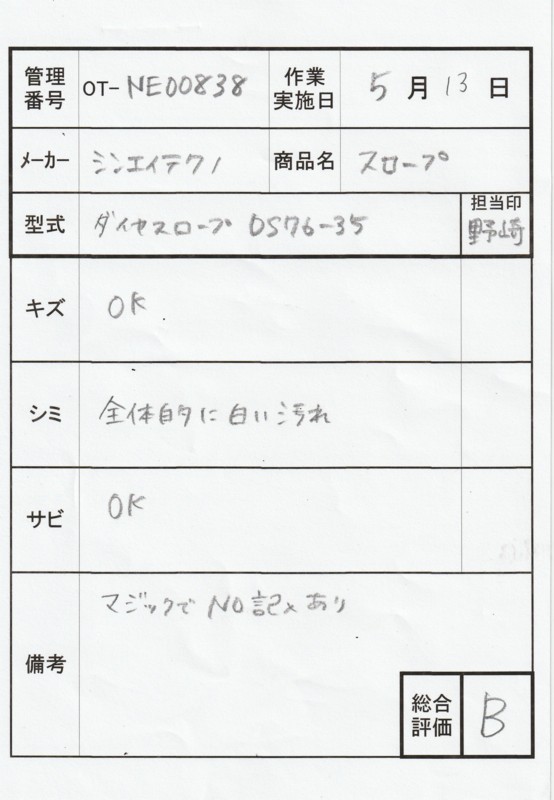 管理番号 OT-NE00838 作業実施日 5月13日
メーカー シンエイテクノ 商品名 スロープ
型式 ダイヤスロープ DS76-35 担当印 野崎
キズ OK
シミ 全体的に白い汚れ
サビ OK
備考 マジックでNO記入あり
総合評価 B